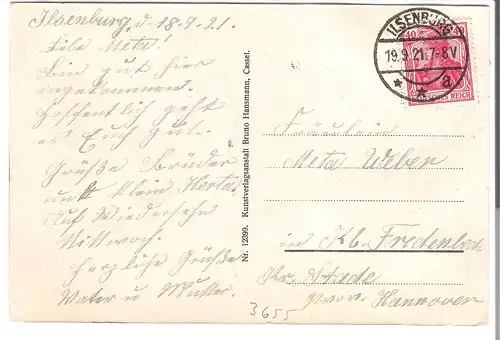 Ilsenburg, d. 18.9.21.
Liebe Meta!
Bin gut hier
angekommen.
Hoffentlich geht
es Euch gut.
Grüße Brüder
und klein Herta.
Auf Wiedersehn
Mittwoch.
Herzliche Grüße
Vater u Mutter.
Nr. 12899. Kunstverlagsanstalt Bruno Hansmann, Cassel.
ILSENBURG
19.9.21.7-8V
* * a
40
REICH
Fräulein
Meta Weber
in Kl. Fredenbeck
Kr. Stade
Prov. Hannover
3655